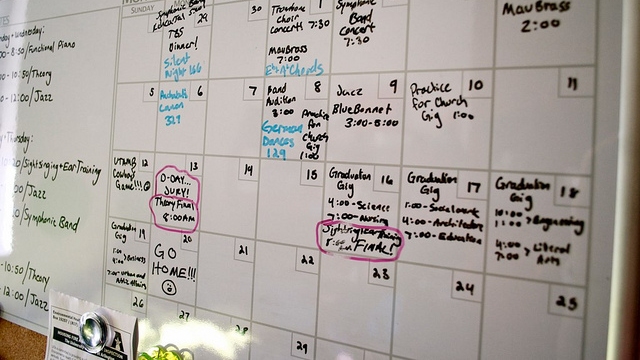 SUNDAY
nday + Wednesday:
00 - 8:50/Functional Piano
- 10:50/Theory
- 12:00/Jazz
+ Thursday:
/SightSinging + Ear Training
/Jazz
/Symphonic Band
- 10:50/Theory
- 12:00/Jazz
29
Symphonic Band
Rehearsal
TBS
Dinner!
Silent
Night 166
30
1
Trombone
Choir
Concert! 7:30
MavBrass
7:00
Chords
Symphonic
Band
Concert
7:30
MavBrass
2:00
5
6
Canon
327
7
8
Band
Audition
3:00
Practice
For
Church
Gig
1:00
German
Dances
129
Jazz 9
BlueBonnet
3:00-5:00
Practice 10
For Church
Gig 1:00
11
UTAMB 12
Cowboy
Game!!!
13
D-DAY...
JURY!
Theory Final
8:00AM
14
15
Graduation 16
Gig
4:00-Science
7:00-Nursing
SightSinging/Ear Training
FINAL!
Graduation 17
Gig
1:00-Social Work
4:00-Architecture
7:00-Education
Graduation 18
Gig
10:00
1:00 > Engineering
4:00
7:00 > Liberal
Arts
Graduation 19
Gig
1:00
4:00 > Business
7:00-Urban and
Affairs
20
GO
HOME!!!
21
22
23
24
25
26
27
28
29